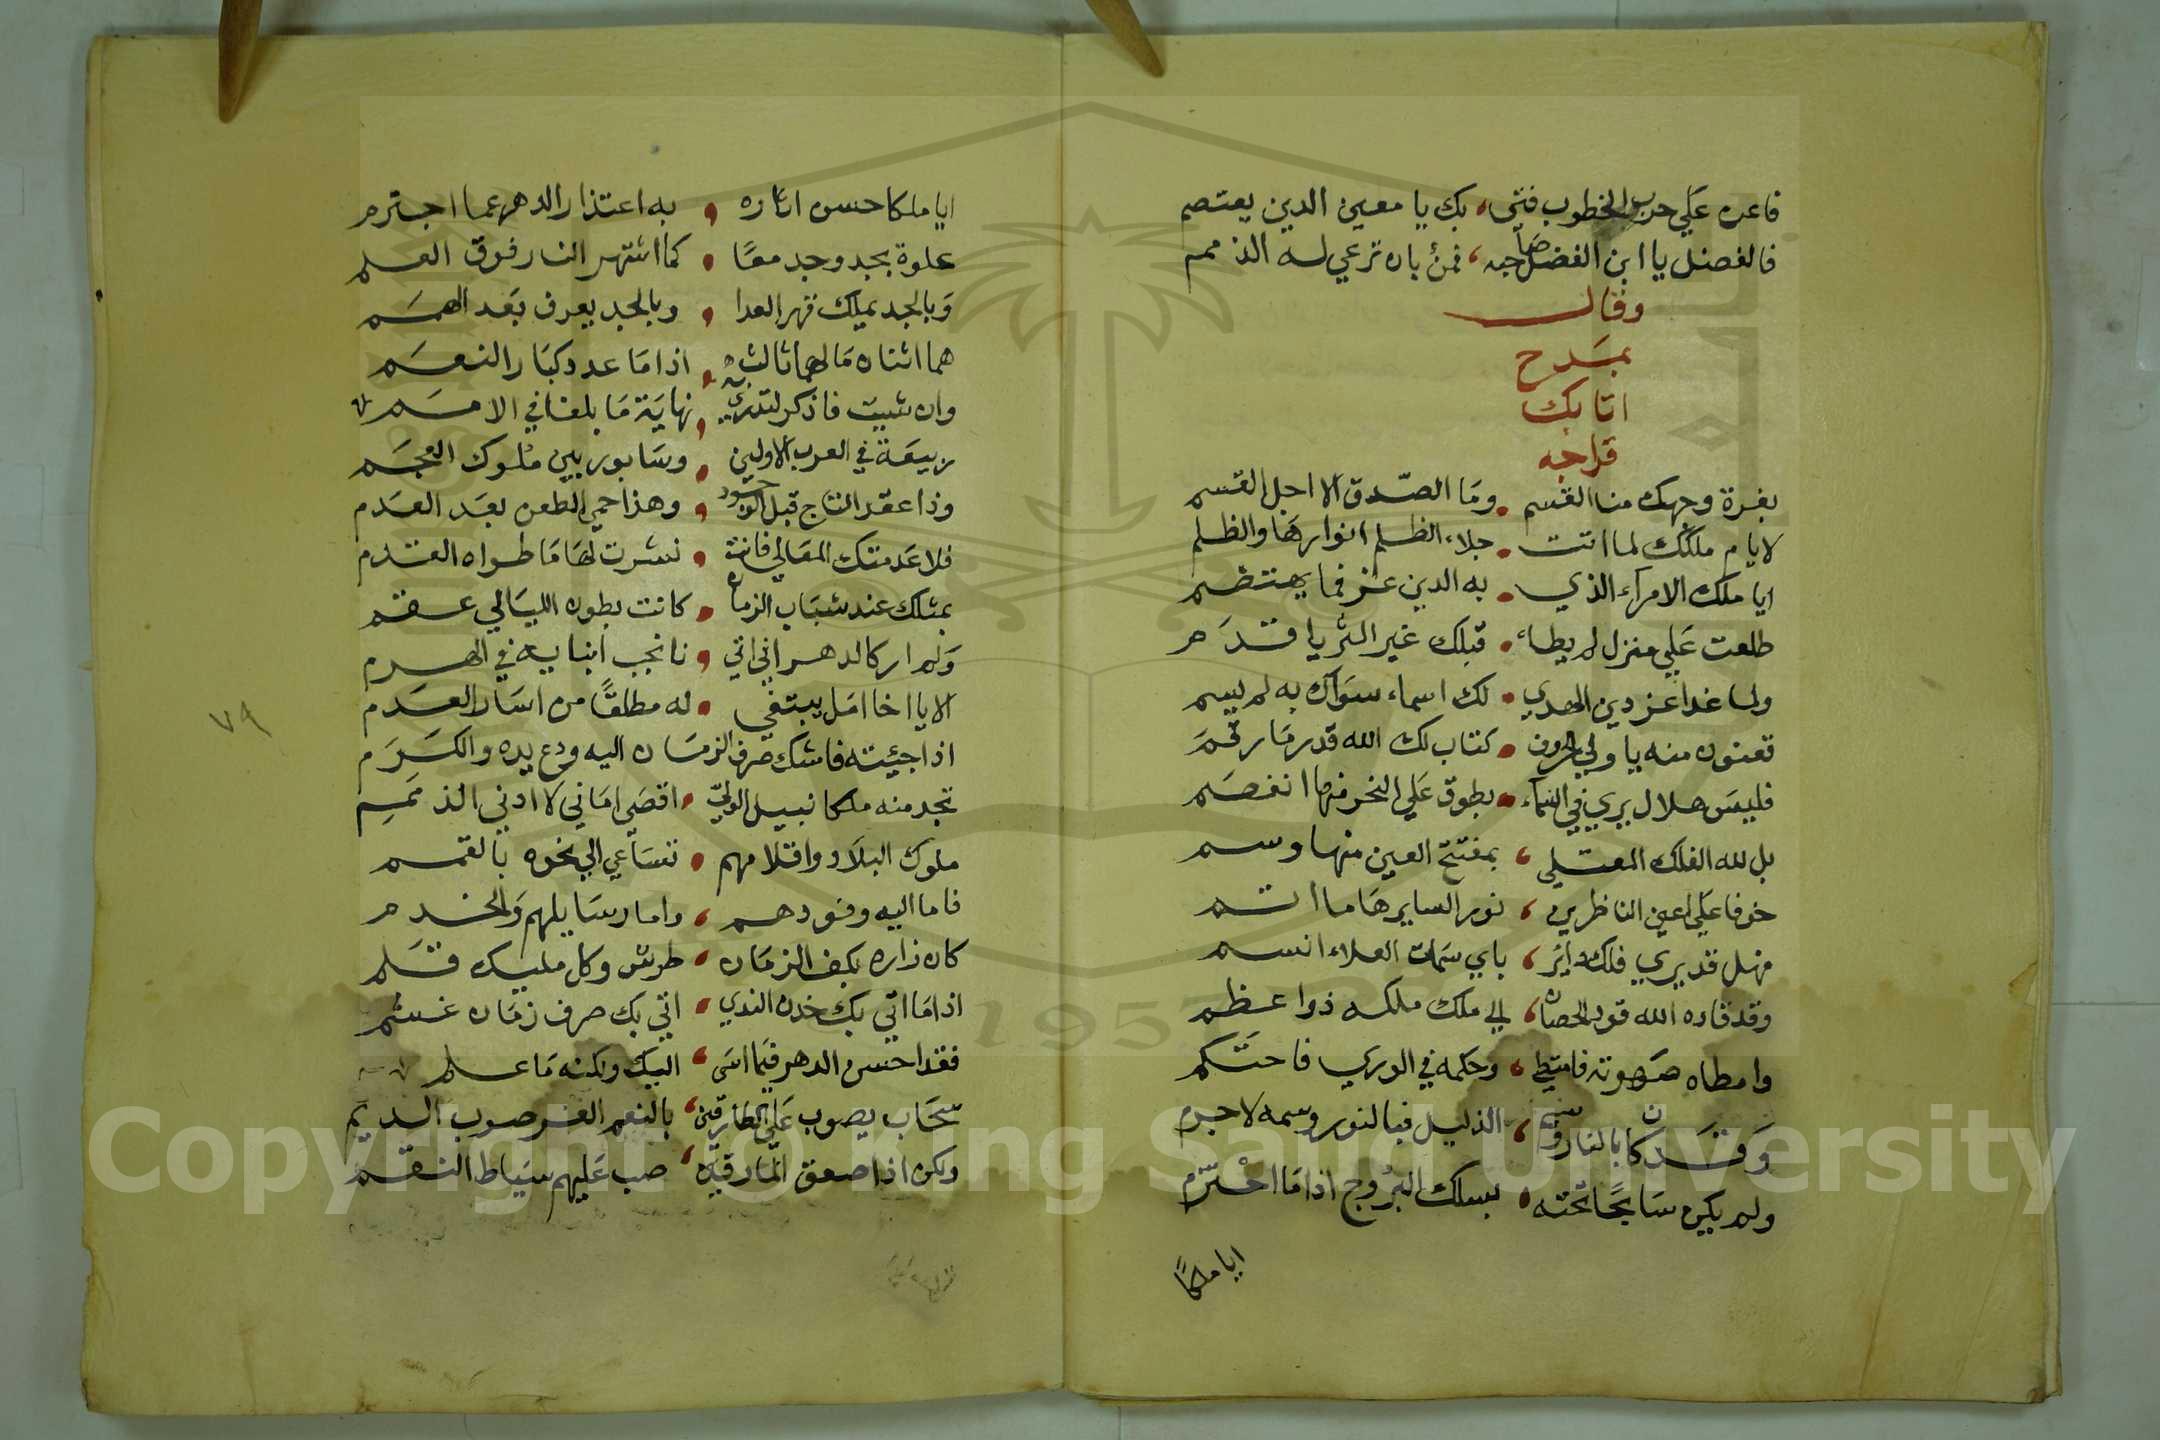 فاعن علي حرب الخطوب فتي، بك يا معين الدين يعتصم
فالفضل يا ابن الفضل صاحبه، فمن بان ترعي له الذمم
وقال
يمدح
اتابك
قراجه
بغرة وجهك منا القسم . وما الصدق الا اجل القسم
لايام ملكك لما اتت . جلاء الظلم انوارها والظلم
ايا ملك الامراء الذي . به الدين عز فما يهتضم
طلعت علي منزل لم يطاء . قبلك غير الثريا قدم
ولما غدا عز دين الهدي . لك اسماء سواك به لم يسم
تعنون منه يا ولي الحروف . كتاب لك الله قدر ما رقم
فليس هلال يري في السماء . بطوق علي النحر منها انفصم
بل لله الفلك المعتلي ، بمفتتح العين منها وسم
خوفا علي اعين الناظرين ، نور السايرها ما اتم
مهل قد يري فلك دائر ، باي سمات العلاء اتسم
وقد قاده الله قود الحصان ، لي ملك ملكه ذو اعظم
وامطاه صهوته فامتطي ، وحكمه في الوري فاحتكم
وقد كان بالنار وسم ، الذليل فبالنور وسمه لا جرم
ولم يكن سابحا تحته . يسلك البروج اذا ما احترم
ايا ملكا
ايا ملكا حسن اثاره . به اعتذار الدهر عما اجترم
علوة بجد وجد معا . كما اشتهر النار فوق العلم
وبالجد يملك قهر العدا . وبالجد يعرف بعد الهمم
هما اثنان ما لهما ثالث . اذا ما عدد كبار النعم
وان شييت فاذكر لتدري به . نهاية ما بلغنا في الامم
ربيعة في العرب الاولين . وسابور بين ملوك العجم
وذا عقد التاج قبل الوجود . وهذا حمي الطعن بعد العدم
فلا عدمتك المعالي فانت . نشرت لها ما طواه القدم
بمثلك عند شباب الزمان . كانت بطون الليالي عقم
ولم ار كالدهر اني اتي . نانجب ابنايه في الهرم
الا يا اخا امل يبتغي . له مطلقا من اسار العدم
اذا جيئته فاشك صرف الزمان اليه ودع يده والكرم
تجد منه ملكا نبيل الولي . اقصي اماني لا ادني الذمم
ملوك البلاد واقلامهم . تتساعي الي نحوه بالقمم
فاما اليه وفودهم ، واما رسايلهم والخدم
كان ذاره بكف الزمان . طرس وكل مليك قلم
اذا ما اتي بك خدن الندي . اتي بك صرف زمان غشم
فقد احسن الدهر فيما اسي ، اليك ولكنه ما علم
سحاب يصوب علي الطارقين ، بالنعم الغر صوب الديم
ولكن اذا صعق المارقين ، صب عليهم سياط النقم
٧٩